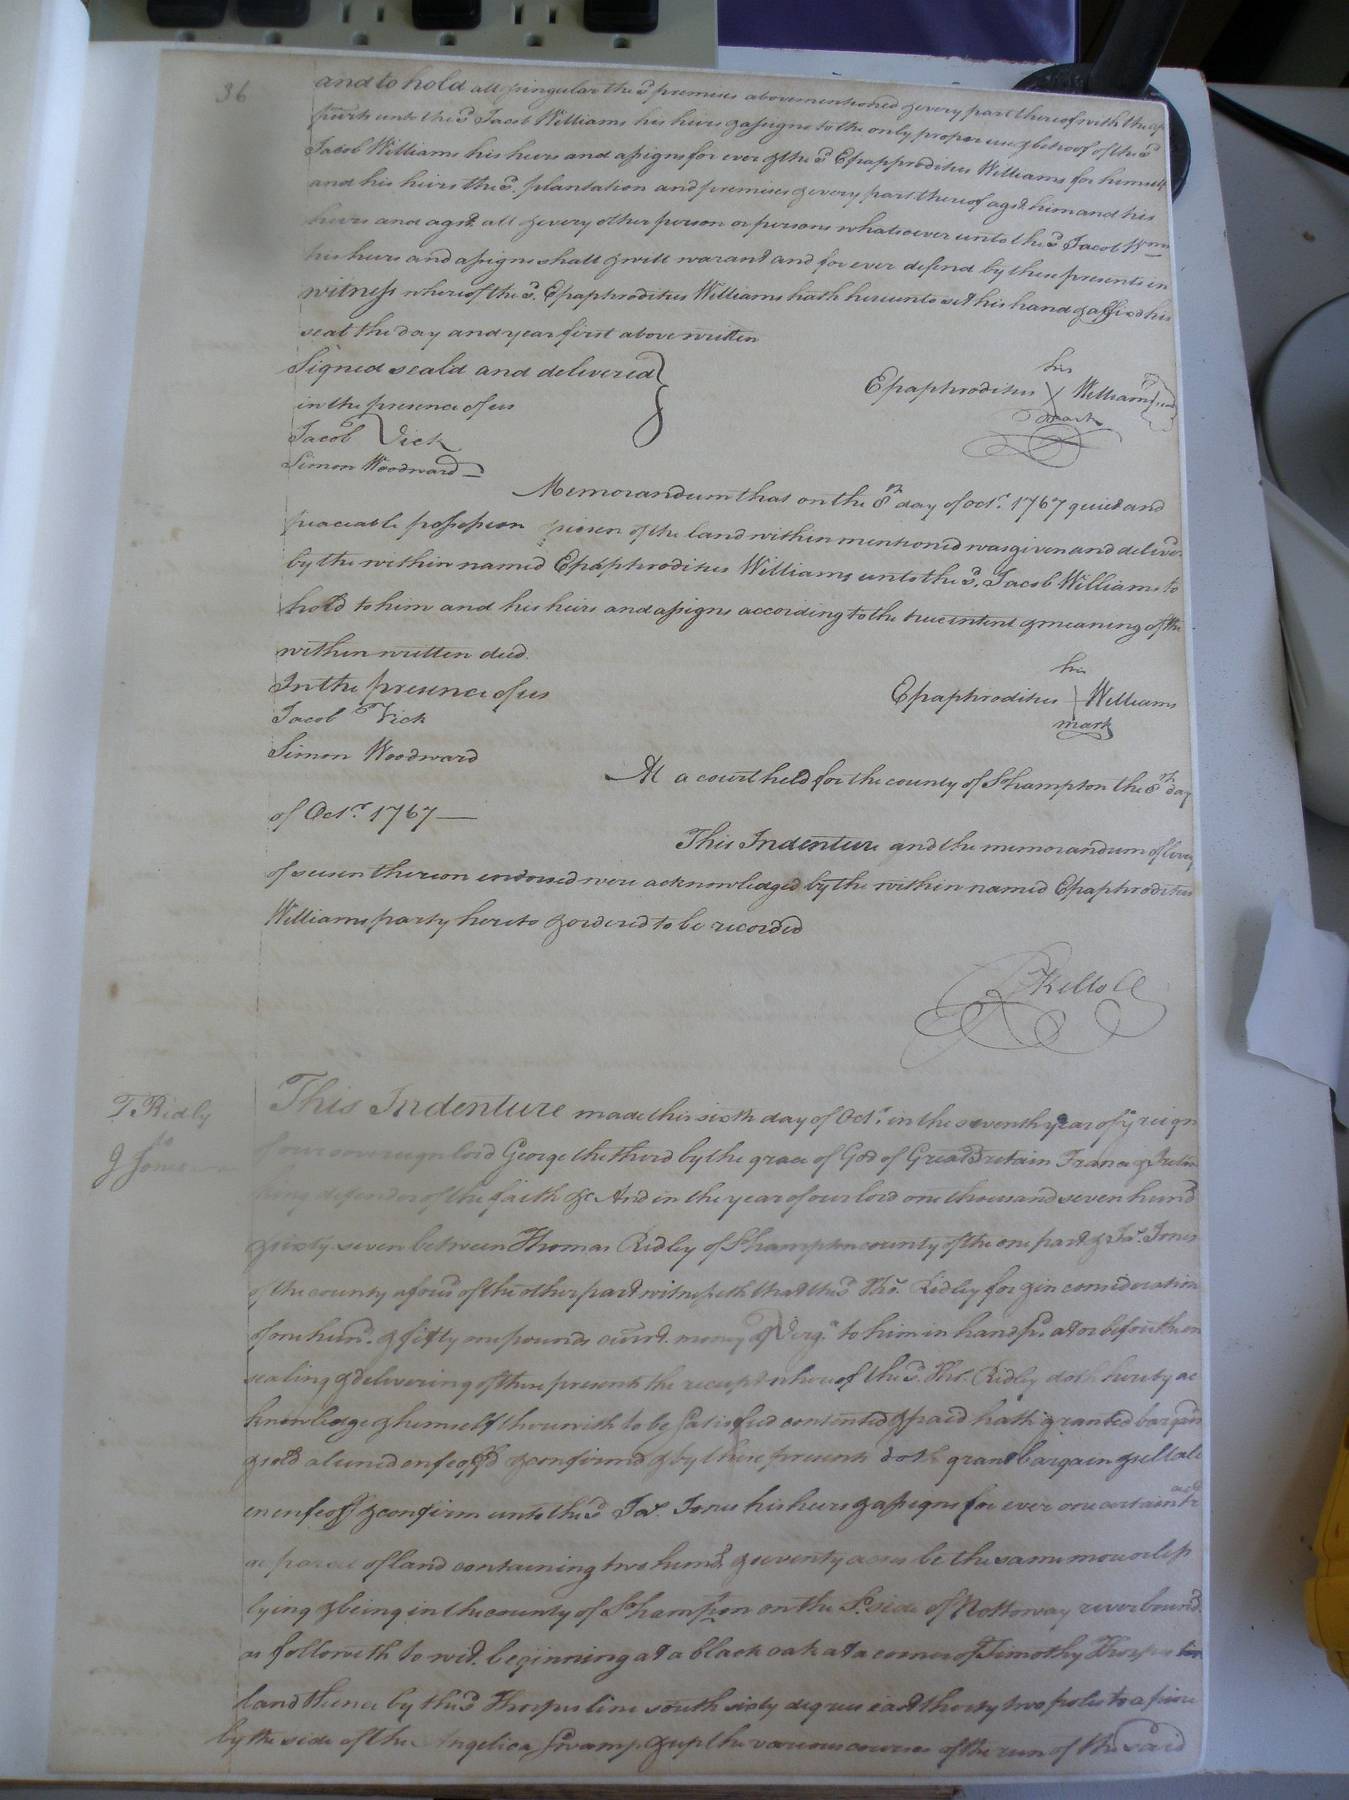 36
and to hold all & singular the sd premises abovementioned & every part thereof with the ap
purts unto the sd Jacob Williams his heirs & assigns to the only proper use & behoof of the sd
Jacob Williams his heirs and assigns for ever & the sd Epapproditus Williams for himself
and his heirs the sd. plantation and premises & every part thereof agst. him and his
heirs and agst. all & every other person or persons whatsoever unto the sd Jacob Wms
his heirs and assigns shall & will warant and for ever defend by these presents in
witness whereof the sd. Epaphroditus Williams hath hereunto set his hand & affixd his
seal the day and year first above written
Signed seald and delivered
in the presence of us
Jacob Vick
Simon Woodward
his
Epaphroditus X Williams seal
mark
Memorandum that on the 8th day of Octr. 1767 quiet and
peaceable possession of the land within mentioned was given and deliverd
by the within named Epaphroditus Williams unto the sd. Jacob Williams to
hold to him and his heirs and assigns according to the true intent & meaning of the
within written deed.
In the presence of us
Jacob Vick
Simon Woodward
his
Epaphroditus Williams
mark
At a court held for the county of Sohampton the 8th day
of Octr. 1767
This Indenture and the memorandum of livery
of seisen thereon endorsed were acknowledged by the within named Epaphroditus
Williams party hereto & ordered to be recorded
R Kello CC
T. Ridly
to
J Jones
This Indenture made this sixth day of Octr. in the seventh year of ye reign
of our sovereign lord George the third by the grace of God of Great Britain France & Irelan
king defender of the faith &c And in the year of our lord one thousand seven hund
& sixty seven between Thomas Ridley of Sohampton county of the one part & Jas. Jones
of the county aforesd of the other part witnesseth that the sd Thos. Ridley for & in consideration
of one hund. & fifty one pounds currt. money of Virga. to him in hand pd. at or before the en
sealing & delivering of these presents the receipt whereof the sd. Thos. Ridley doth hereby ac
knowledge & himself therewith to be satisfied contented & paid hath granted bargain
& sold aliened enfeoffd & confirmd & by these presents doth grant bargain & sell ali
en enfeoff & confirm unto the sd Jas. Jones his heirs & assigns for ever one certain tr
act
or parcel of land containing two hund. & seventy acres be the same more or less
lying & being in the county of Sohampton on the So. side of Nottoway river bound.
as followeth to wit. beginning at a black oak at a corner of Timothy Thorps
land thence by the sd Thorps line south sixty degrees east thirty two poles to a pine
by the side of the Angelica Swamp & up the various courses of the run of the said